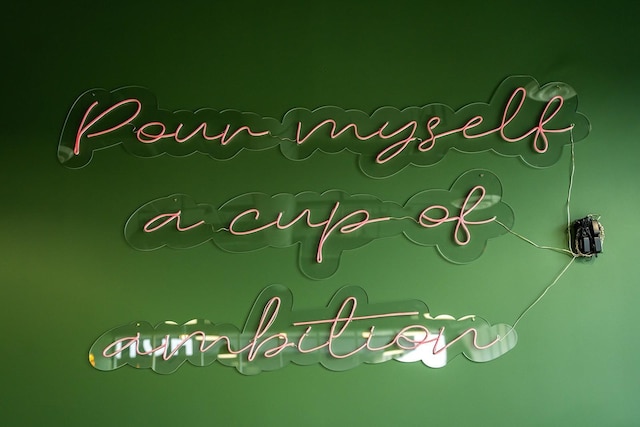 Pour myself
a cup of
ambition